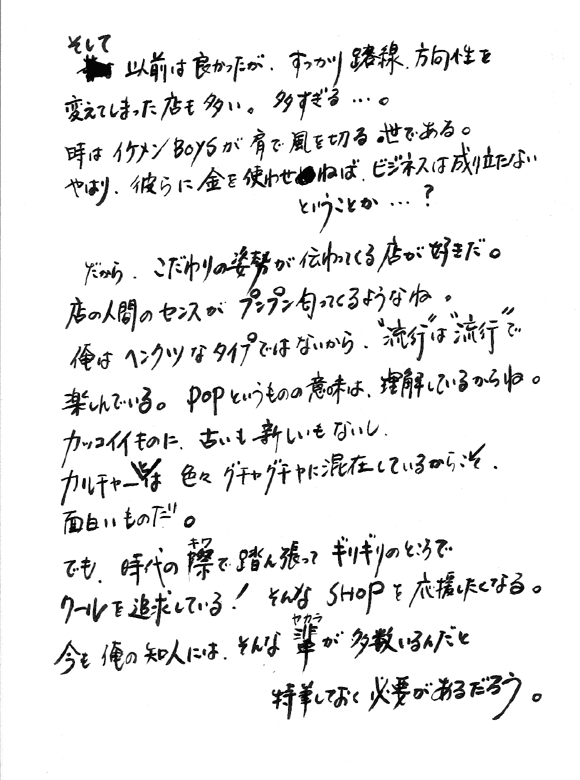 そして
以前は良かったが、すっかり路線、方向性を
変えてしまった店も多い。多すぎる…。
時はイケメンBOYSが肩で風を切る世である。
やはり、彼らに金を使わせねば、ビジネスは成り立たない
ということか…？
だから、こだわりの姿勢が伝わってくる店が好きだ。
店の人間のセンスがプンプン匂ってくるようなね。
俺はヘンクツなタイプではないから、“流行”は“流行”で
楽しんでいる。POPというものの意味は、理解しているからね。
カッコイイものに、古いも新しいもないし、
カルチャーとは色々グチャグチャに混在しているからこそ、
面白いものだ。
でも、時代の際(キワ)で踏ん張ってギリギリのところで
クールを追求している！そんなSHOPを応援したくなる。
今も俺の知人には、そんな輩(ヤカラ)が多数いるんだと
特筆しておく必要があるだろう。